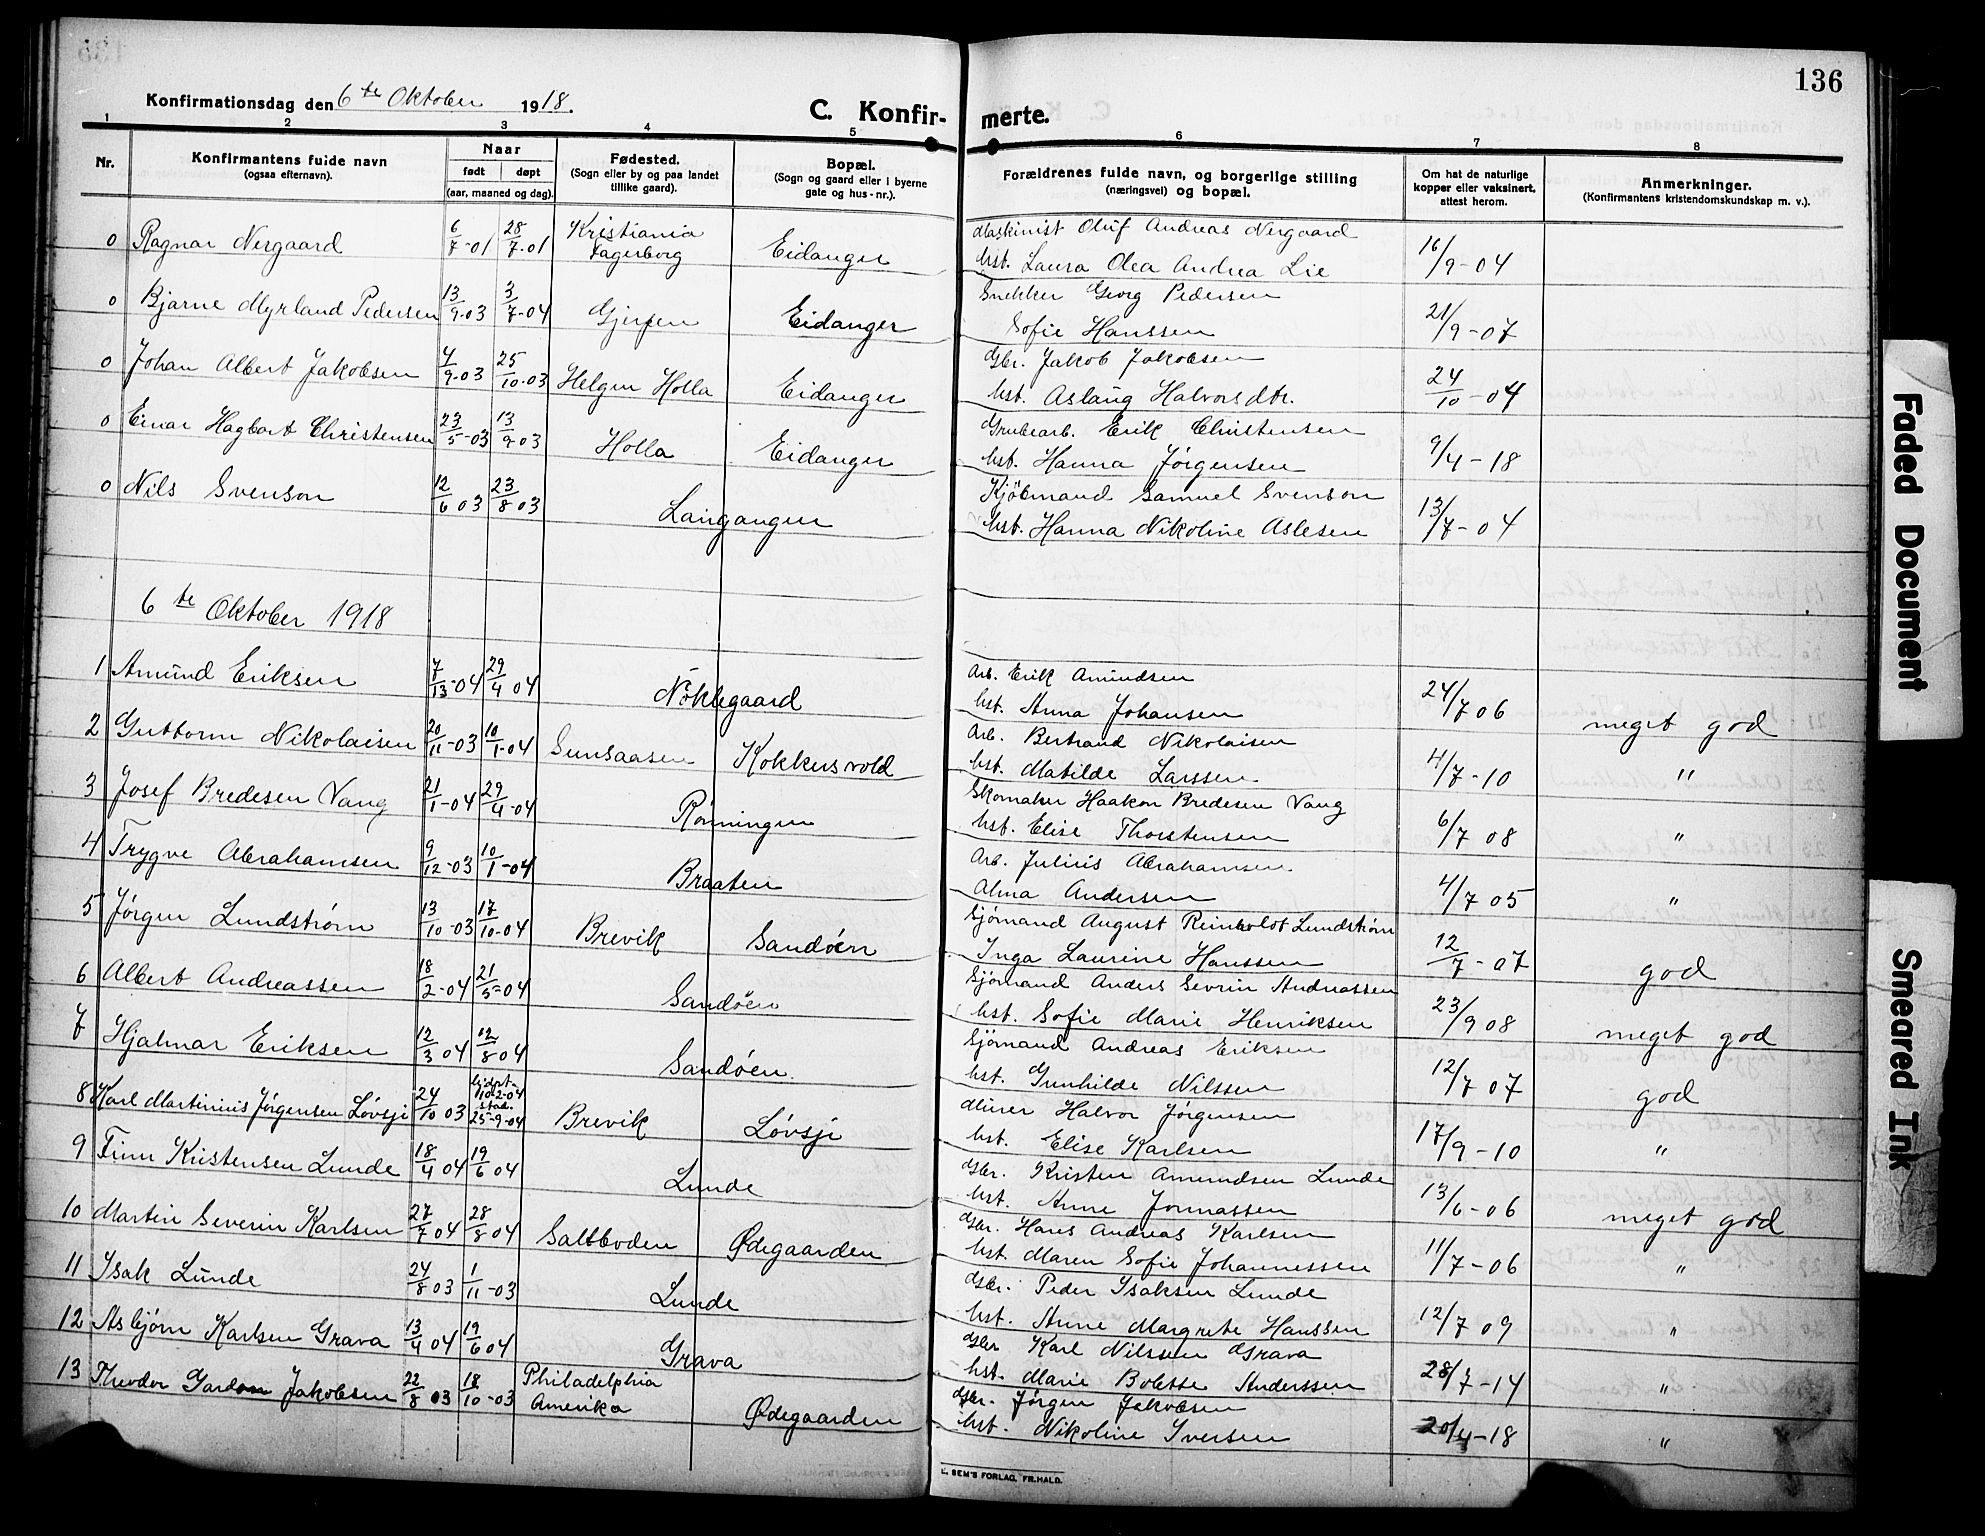 136
Konfirmationsdag den 6 te Oktober 1918.
C. Konfir- merte.
1 2 3 4 5 6 7 8
Nr. Konfirmantens fulde navn (ogsaa efternavn). Naar født døpt (aar, maaned og dag). Fødested. (Sogn eller by og paa landet tillike gaard). Bopæl. (Sogn og gaard eller i byerne gate og hus-nr.). Forældrenes fulde navn, og borgerlige stilling (næringsvei) og bopæl. Om hat de naturlige kopper eller vaksinert, attest herom. Anmerkninger. (Konfirmantens kristendomskundskap m. v.).
0 Ragnar Nergaard 6/7-01 28/7-01 Kristiania Fagerborg Eidanger Maskinist Oluf Andreas Nergaard
hst. Laura Olea Andrea Lie 16/9-04
0 Bjarne Myrland Pedersen 13/9-03 3/7-04 Gjerpen Eidanger Snekker Georg Pedersen
Sofie Hanssen 21/9-07
0 Johan Albert Jakobsen 4/9-03 25/10-03 Helgen Holla Eidanger Gbr. Jakob Jakobsen
hst. Aslaug Halvorsdtr. 24/10-04
0 Einar Hagbart Christensen 23/5-03 13/9-03 Holla Eidanger Grubearb. Erik Christensen
hst. Hanna Jørgensen 9/4-18
0 Nils Svenson 12/6 03 23/8 03 Langangen Kjöbmand Samuel Svenson
hst. Hanna Nikoline Aslesen 13/7-04
6 te Oktober 1918
1 Amund Eriksen 7/13-04 29/4 04 Nöklegaard Arb. Erik Amundsen
hst. Anna Johansen 24/7 06 meget god
2 Guttorm Nikolaisen 20/11-03 10/1-04 Sunsaasen Kokkersvold Arb. Bertrand Nikolaisen
hst. Matilde Larssen 4/7-10 "
3 Josef Bredesen Vang 21/1-04 29/4-04 Rønningen Skomaker Haakon Bredesen Vang
hst. Elise Thorstensen 6/7 08 "
4 Trygve Abrahamsen 9/12-03 10/1-04 Braaten Arb. Julius Abrahamsen
Alma Andersen 4/7 05 "
5 Jørgen Lundstrøm 13/10-03 17/10-04 Brevik Sandöen Sjömand August Reinholdt Lundstrøm
Inga Laurine Hanssen 12/7-07 god
6 Albert Andreassen 18/2-04 21/5-04 Sandöen Sjömand Anders Sevrin Andreassen
hst. Sofie Marie Henriksen 23/9 08 meget god
7 Hjalmar Eriksen 12/3 04 12/8 04 Sandöen Sjömand Andreas Eriksen
hst. Gunhilde Nilssen 12/7 07 god
8 Karl Martinius Jørgensen Løvsjø 24/10 03 hjdpt. 10-2-04 stad. 25-9-04 Brevik Løvsjø Murer Halvor Jørgensen
hst. Elise Karlsen 17/9-10 "
9 Finn Kristensen Lunde 18/4 04 19/6 04 Lunde Gbr. Kristen Amundsen Lunde
hst. Anne Jonnassen 13/6-06 meget god
10 Martin Severin Karlsen 27/7 04 28/8 04 Saltboden Ødegaarden Gbr. Hans Andreas Karlsen
hst. Maren Sofie Johannessen 11/7-06 "
11 Isak Lunde 24/8 03 1/11-03 Lunde Gbr. Peder Isaksen Lunde
hst. Anne Margrete Hanssen 12/7 09 "
12 Asbjørn Karlsen Grava 13/4 04 19/6 04 Grava Gbr Karl Nilssen Grava
hst. Marie Bolette Anderssen 28/7-14 "
13 Theodor Gordon Jakobsen 22/8 03 18/10-03 Philadelphia Amerika Ødegaarden Gbr. Jørgen Jakobsen
hst. Nikoline Iversen 20/4-18 "
E. SEM'S FORLAG, FR.HALD.
Faded Document
Smeared Ink